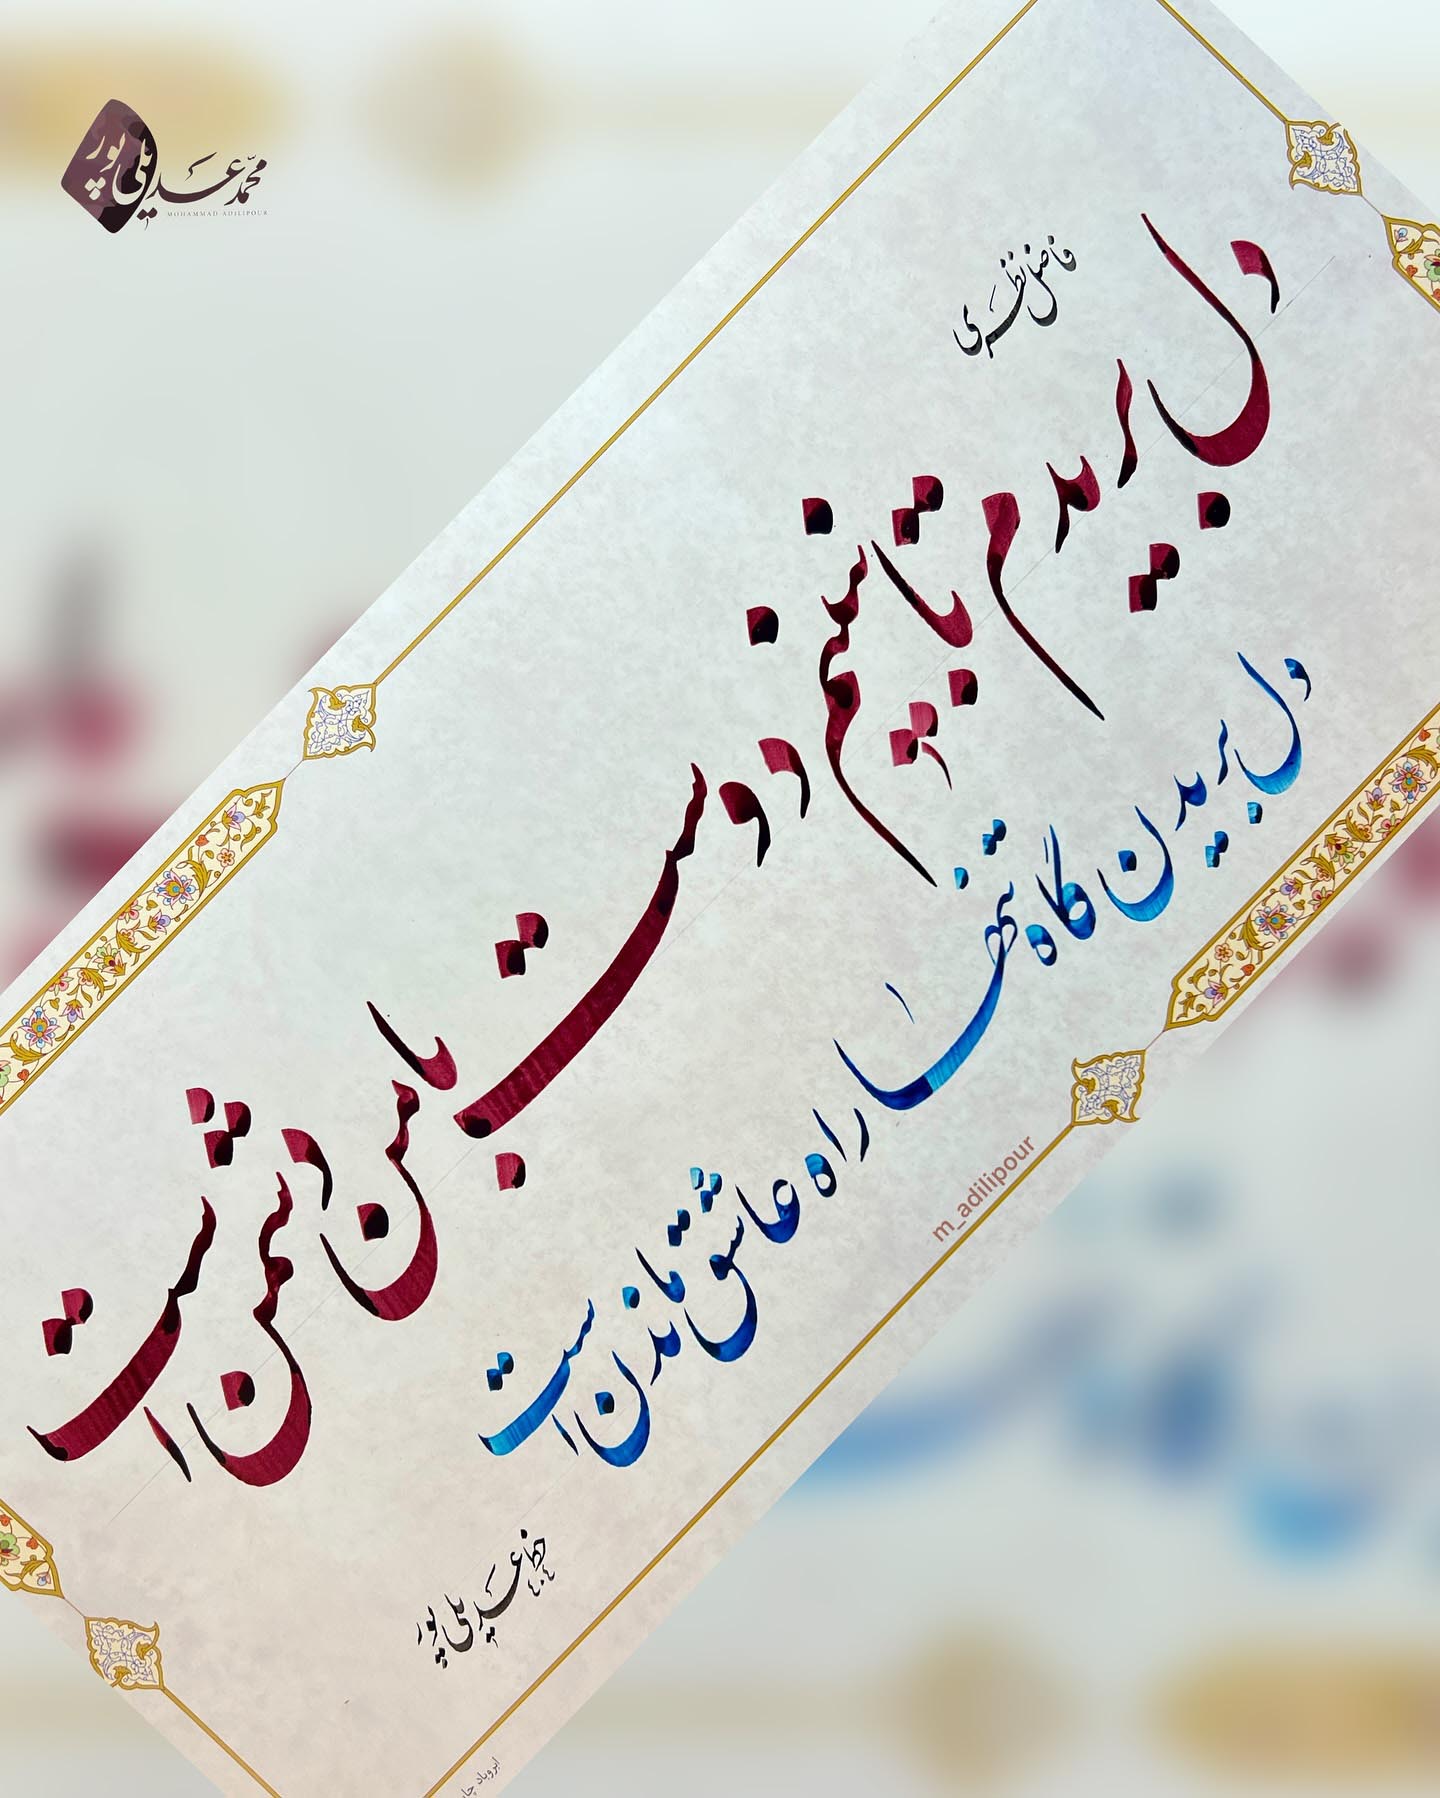 محمد عدیلی پور
MOHAMMAD ADILIPOUR
فاضل نظری
دل بریدم تا نبینم دوست با من دشمن است
دل بریدن گاه تنها راه عاشق ماندن است
m_adilipour
خط عدیلی پور
۴۰۴
ابروباد